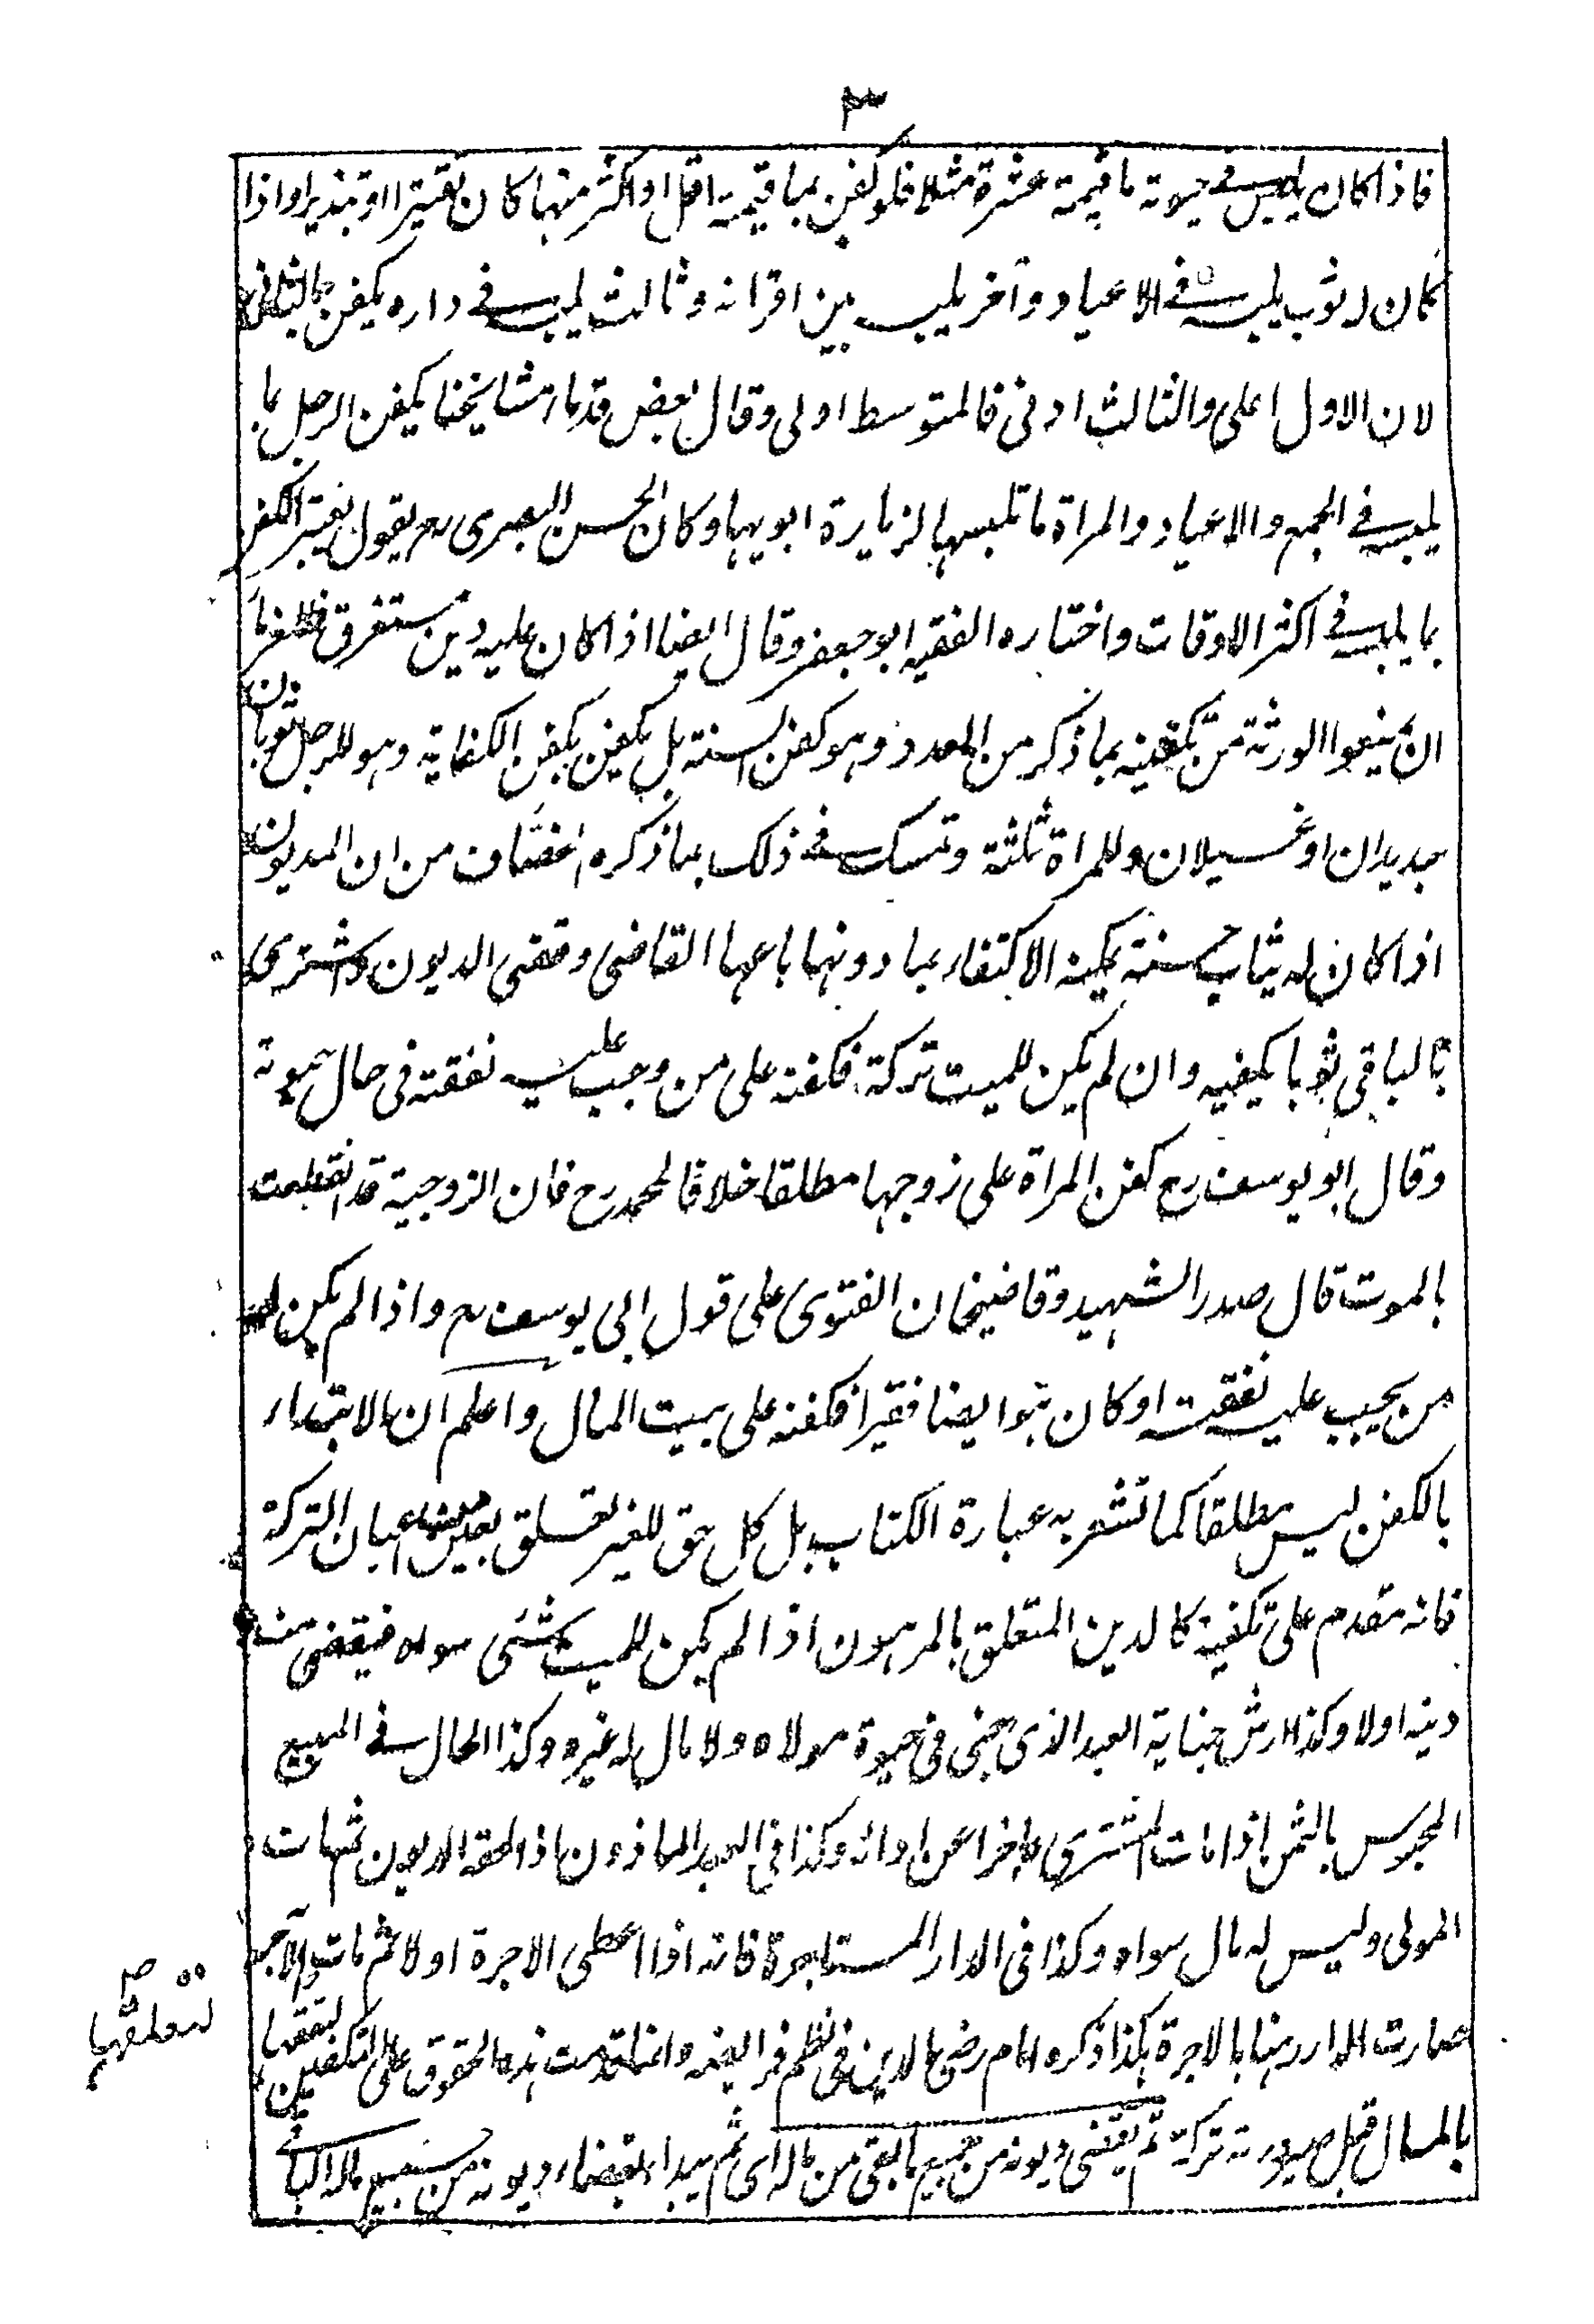 ٣
فاذا كان يلبس في حيوته ما قيمته عشرة مثلا فلو كفن بما قيمته اقل او اكثر منها كان تقتيرا او تبذيرا واذا
كان له ثوب يلبسه في الاعياد وآخر يلبسه بين اقرانه وثالث يلبسه في داره يكفن بالثاني
لان الاول اعلى والثالث ادنى فالمتوسط اولى وقال بعض قدماء مشايخنا يكفن الرجل بما
يلبسه في الجمع والاعياد والمراة ما تلبسها لزيارة ابويها وكان الحسن البصرى رح يقول يعتبر الكفن
بما يلبسه في اكثر الاوقات واختاره الفقيه ابو جعفر وقال ايضا اذا كان عليه دين مستغرق فللغرماء
ان يمنعوا الورثة من تكفينه بما ذكر من العدد وهو كفن السنة بل يكفن بكفن الكفاية وهو للرجل ثوبان
جديدان او غسيلان وللمراة ثلثة وتمسك في ذلك بما ذكره الخصّاف من ان المديون
اذا كان له ثياب حسنة يمكنه الاكتفاء بما دونها باعها القاضى وقضى الديون واشترى
بالباقى ثوبا يكفيه وان لم يكن للميت تركة فكفنه على من وجب عليه نفقته فى حال حيوته
وقال ابو يوسف رح كفن المراة على زوجها مطلقا خلافا لمحمد رح فان الزوجية قد انقطعت
بالموت قال صدر الشهيد وقاضيخان الفتوى على قول ابى يوسف رح واذا لم يكن له
من يجب عليه نفقته او كان هو ايضا فقيرا فكفنه على بيت المال واعلم ان الابتداء
بالكفن ليس مطلقا كما تشعر به عبارة الكتاب بل كل حق للغير تعلق بعين من اعيان التركة
فانه مقدم على تكفينه كالدين المتعلق بالمرهون اذا لم يكن للميت شئ سواه فيقضى منه
دينه اولا وكذا ارش جناية العبد الذى جنى فى حيوة مولاه ولا مال له غيره وكذا الحال في المبيع
المحبوس بالثمن اذا مات المشترى عاجزا عن ادائه وكذا فى العبد الماذون اذا لحقه الديون ثم مات
المولى وليس له مال سواه وكذا فى الدار المستاجرة فانه اذا اعطى الاجرة اولا ثم مات الآجر
صارت الدار رهنا بالاجرة هكذا ذكره الامام رضى الدين فى نظم فرائضه وانما قدمت هذه الحقوق على التكفين
لتعلقها
بالمال قبل صيرورته تركة ثم يقضى ديونه من جميع ما بقى من ماله اى ثم يبدا بقضاء ديونه من جميع ماله الباقى